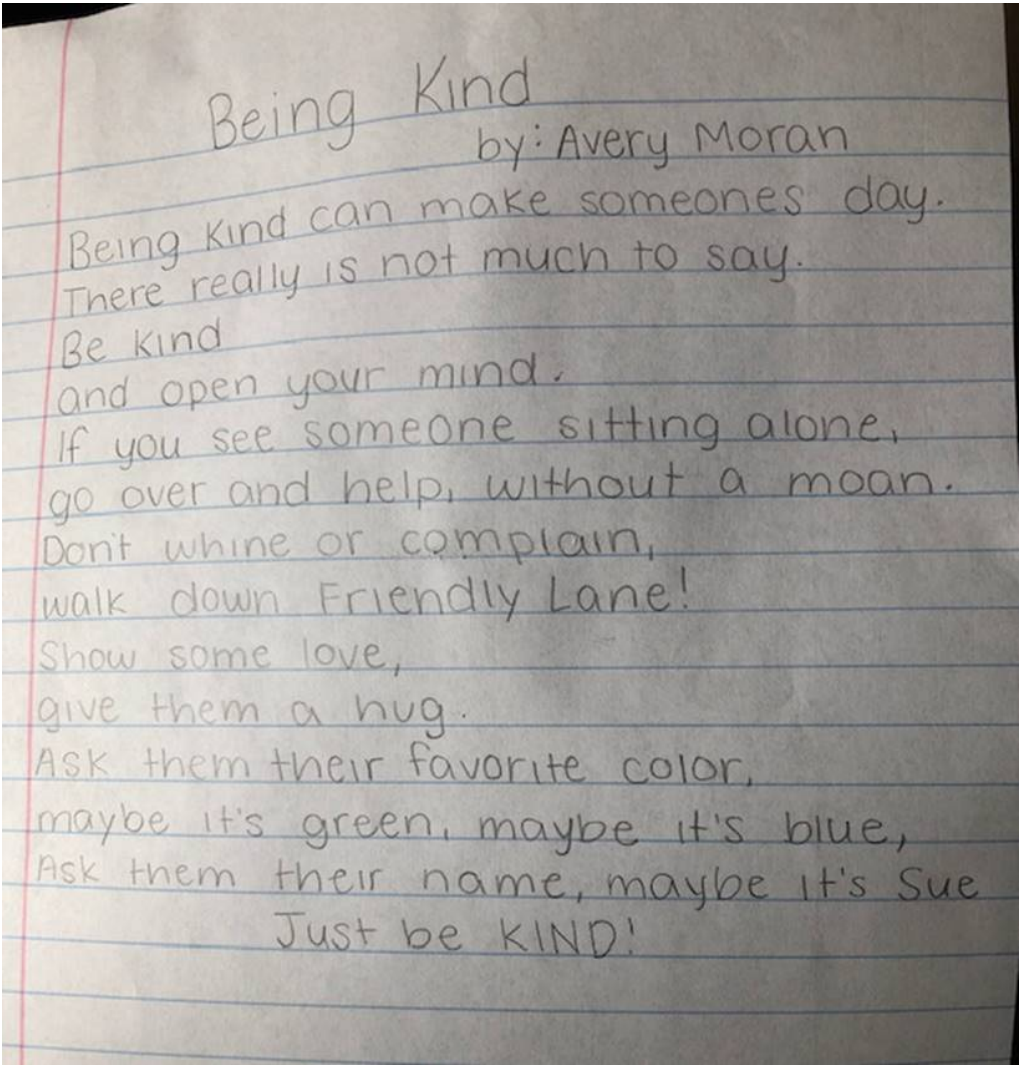 Being Kind
by: Avery Moran
Being Kind can make someones day.
There really is not much to say.
Be Kind
and open your mind.
If you see someone sitting alone,
go over and help, without a moan.
Don't whine or complain,
walk down Friendly Lane!
Show some love,
give them a hug.
Ask them their favorite color,
maybe it's green, maybe it's blue,
Ask them their name, maybe it's Sue
Just be KIND!